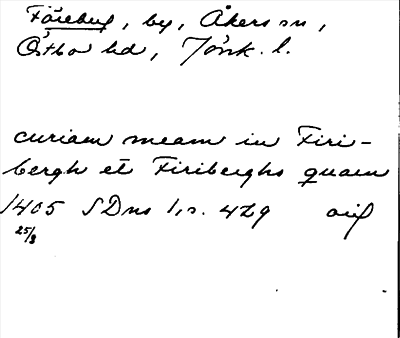 Fåreberg, by, Åkers sn,
Östbo hd, Jönk. l.
curiam meam in Firi-
bergh et Firiberghs quam
1405 SDns 1, s. 429 orig
25/3